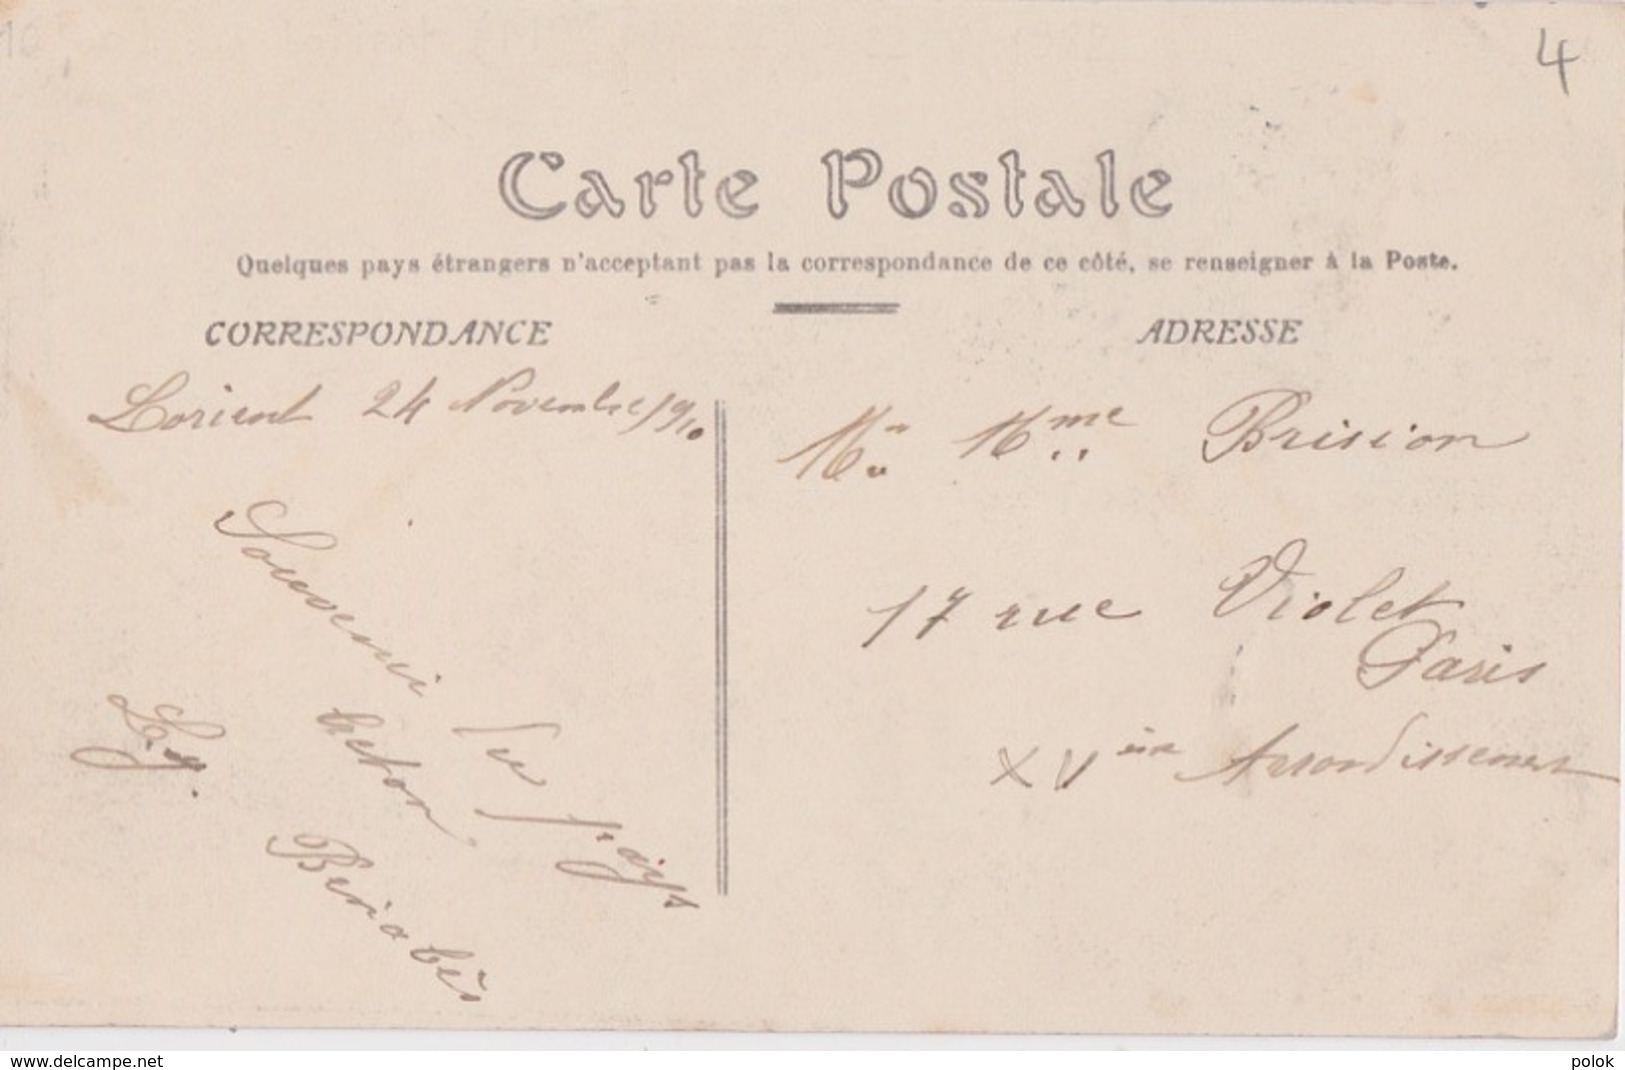 4
Carte Postale
Quelques pays étrangers n'acceptant pas la correspondance de ce côté, se renseigner à la Poste.
CORRESPONDANCE
Lorient 24 Novembre 1910
Souvenir du pays
breton
L. J.
ADRESSE
Mr. Mme Brision
17 rue Violet
Paris
XV ième Arrondissement
www.delcampe.net
polok